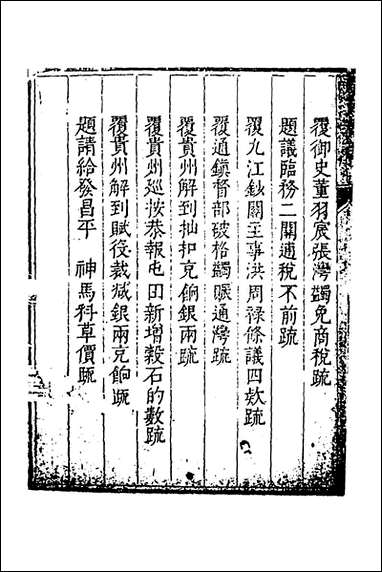 覆御史董羽宸張灣蠲免商稅疏
題議臨務二關逋稅不前疏
覆九江鈔關主事洪周祿條議四款疏
覆通鎮督部破格蠲賑通灣疏
覆貴州解到抽扣充餉銀兩疏
覆貴州巡按恭報屯田新增穀石的數疏
覆貴州解到賦役裁減銀兩充餉疏
題請給發昌平 神馬料草價疏